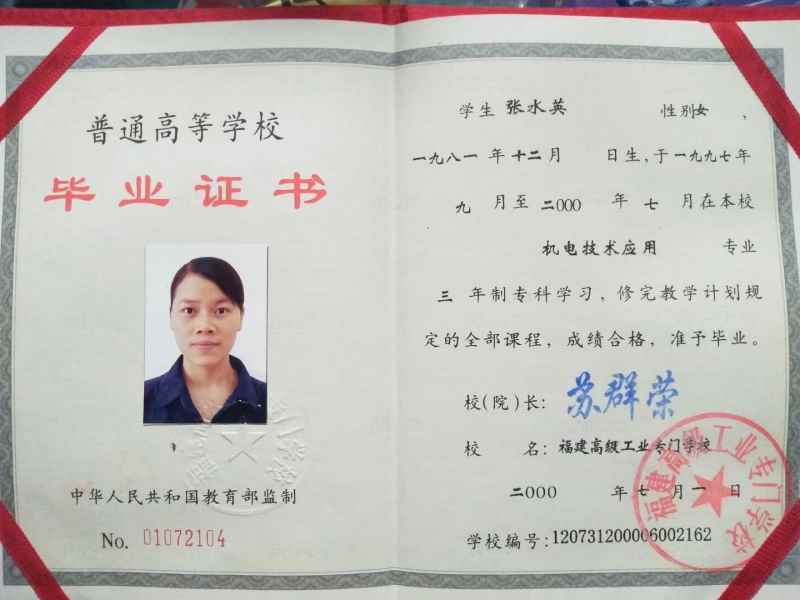 普通高等学校
毕业证书
中华人民共和国教育部监制
No. 01072104
学生 张水英 性别女，
一九八一 年 十二月 日生，于一九九七年
九 月至 二000 年 七 月在本校
机电技术应用 专业
三 年制专科学习，修完教学计划规
定的全部课程，成绩合格，准予毕业。
校(院)长：苏群荣
校 名：福建高级工业专门学校
二000 年 七 月 一 日
学校编号：120731200006002162
福建高级工业专门学校